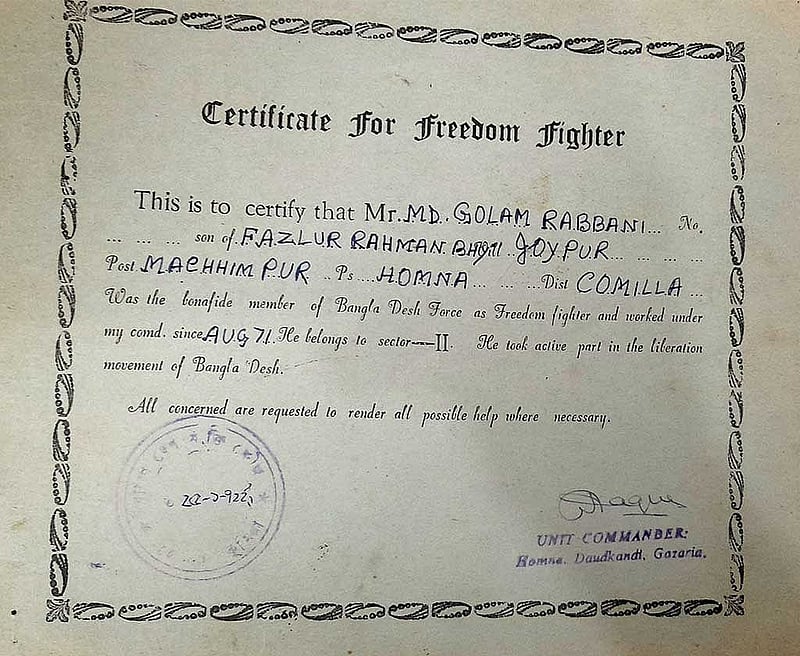 Certificate For Freedom Fighter
This is to certify that Mr. MD. GOLAM RABBANI... No.
... ... ... son of. FAZLUR RAHMAN. JOYPUR... ... ...
Post MACHHIMPUR ..Ps....HOMNA... ... ...Dist COMILLA ...
Was the bonafide member of Bangla Desh Force as Freedom fighter and worked under
my comd. since AUG 71. He belongs to sector----II. He took active part in the liberation
movement of Bangla Desh.
All concerned are requested to render all possible help where necessary.
UNIT COMMANDER:
Homna. Daudkandi, Gazaria.